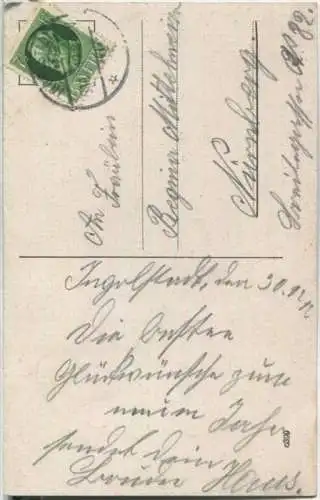 An Fräulein
Regina Mittelmeier
Nürnberg.
Ingolstadt, den 30.12.
Die besten
Glückwünsche zum
neuen Jahr
sendet dein
Bruder Hans.